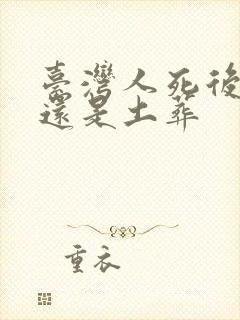 臺灣人死後
還是土葬
重衣